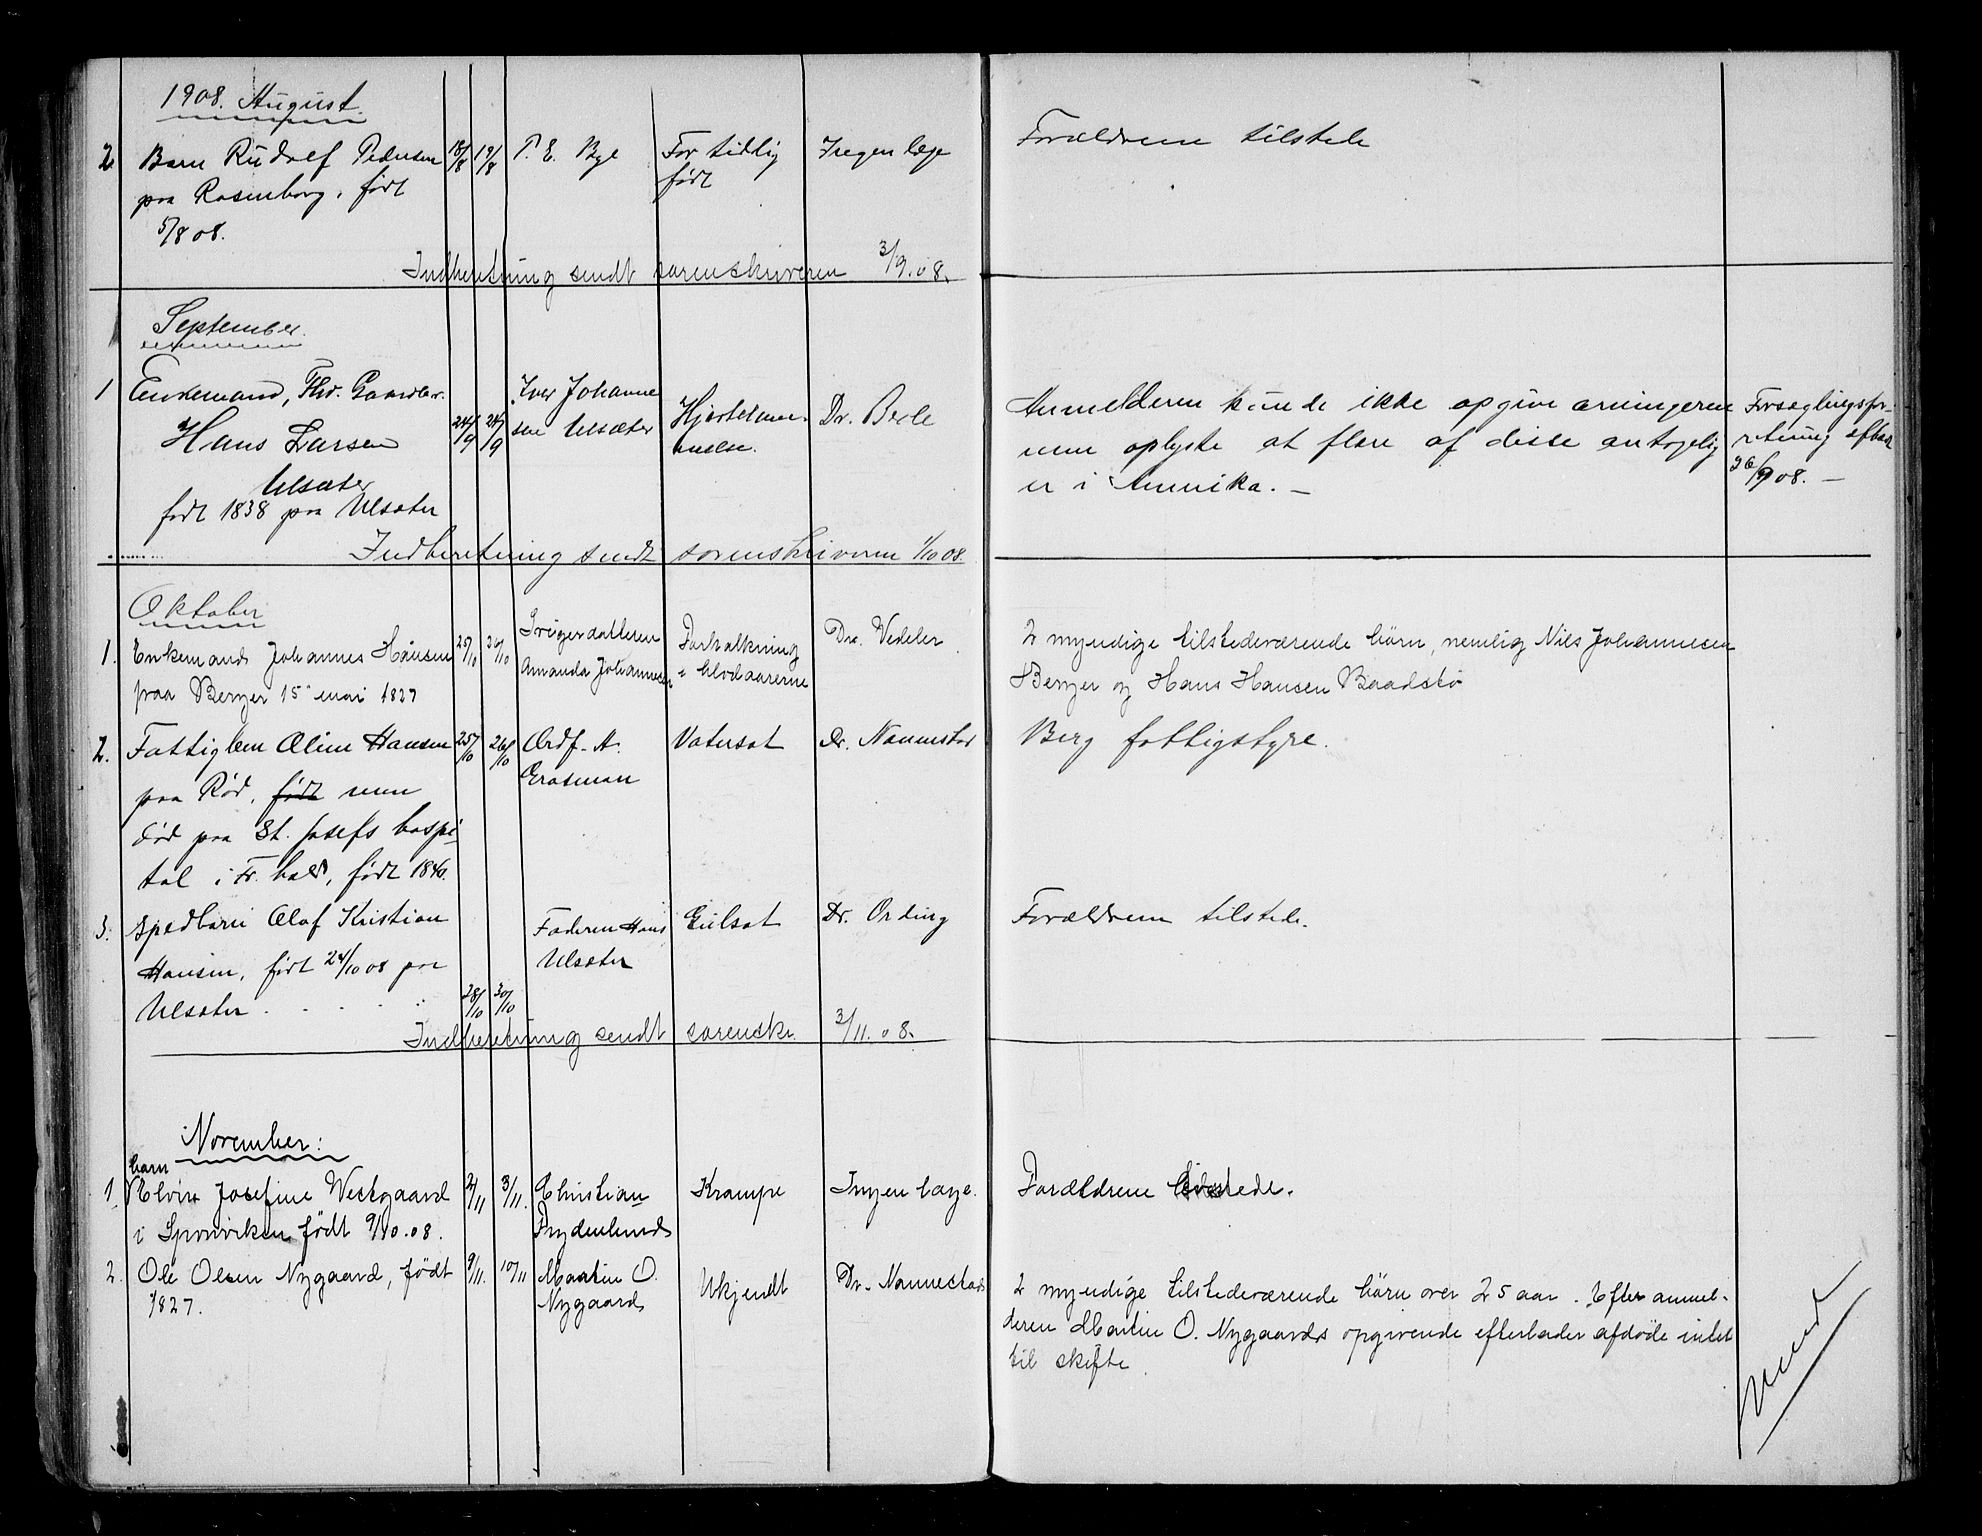 1908. August.
2 Barn Rudolf Pedersen 18/8 19/8 P. E. Bye For tidlig Ingen læge Forældrene tilstede
paa Rosenborg, født født
5/8 08.
Indberetning sendt sorenskriveren 3/9.08.
September.
1 Enkemand, Fhv. Gaardbr. 24/9 24/9 Iver Johanne Hjertelam- Dr. Berle Anmelderen kunde ikke opgive arvingerne Forseglingsfor-
Hans Larsen sen Ulsæter melse. men oplyste at flere af disse antagelig retning afholdt
Ulsæter er i Amerika. — 26/9 08. —
født 1838 paa Ulsæter
Indberetning sendt sorenskriveren 1/10 08.
Oktober
1. Enkemand Johannes Hansen 25/10 26/10 Svigerdatteren Forkalkning Dr. Vedeler 2 myndige tilstedeværende børn, nemlig Nils Johannesen
paa Berger 15 mai 1827 Amanda Johannesen i blodaarerne Berger og Hans Hansen Baadstø
2. Fattiglem Oline Hansen 25/10 26/10 Ordf. A. Vatersot Dr. Nannestad Berg fattigstyre.
paa Rød, født men Erasmon
død paa St. Josefs hospi-
tal i Fr. hald, født 1840.
3. Spedbarn Olaf Kristian Faderen Hans Gulsot Dr. Ording Forældrene tilstede.
Hansen, født 24/10 08 paa Ulsæter
Ulsæter 28/10 30/10
Indberetning sendt sorenskr. 3/11.08.
November:
barn
1. Elvira Josefine Westgaard 2/11 3/11. Christian Krampe Ingen læge. Forældrene tilstede.
i Sponviken født 9/10.08. Frydenlund
2. Ole Olsen Nygaard, født 9/11. 10/11 Martin O. Ukjendt Dr. Nannestad 2 myndige tilstedeværende børn over 25 aar. Efter anmel-
1827. Nygaard deren Martin O. Nygaards opgivende efterlader afdøde intet
til skifte